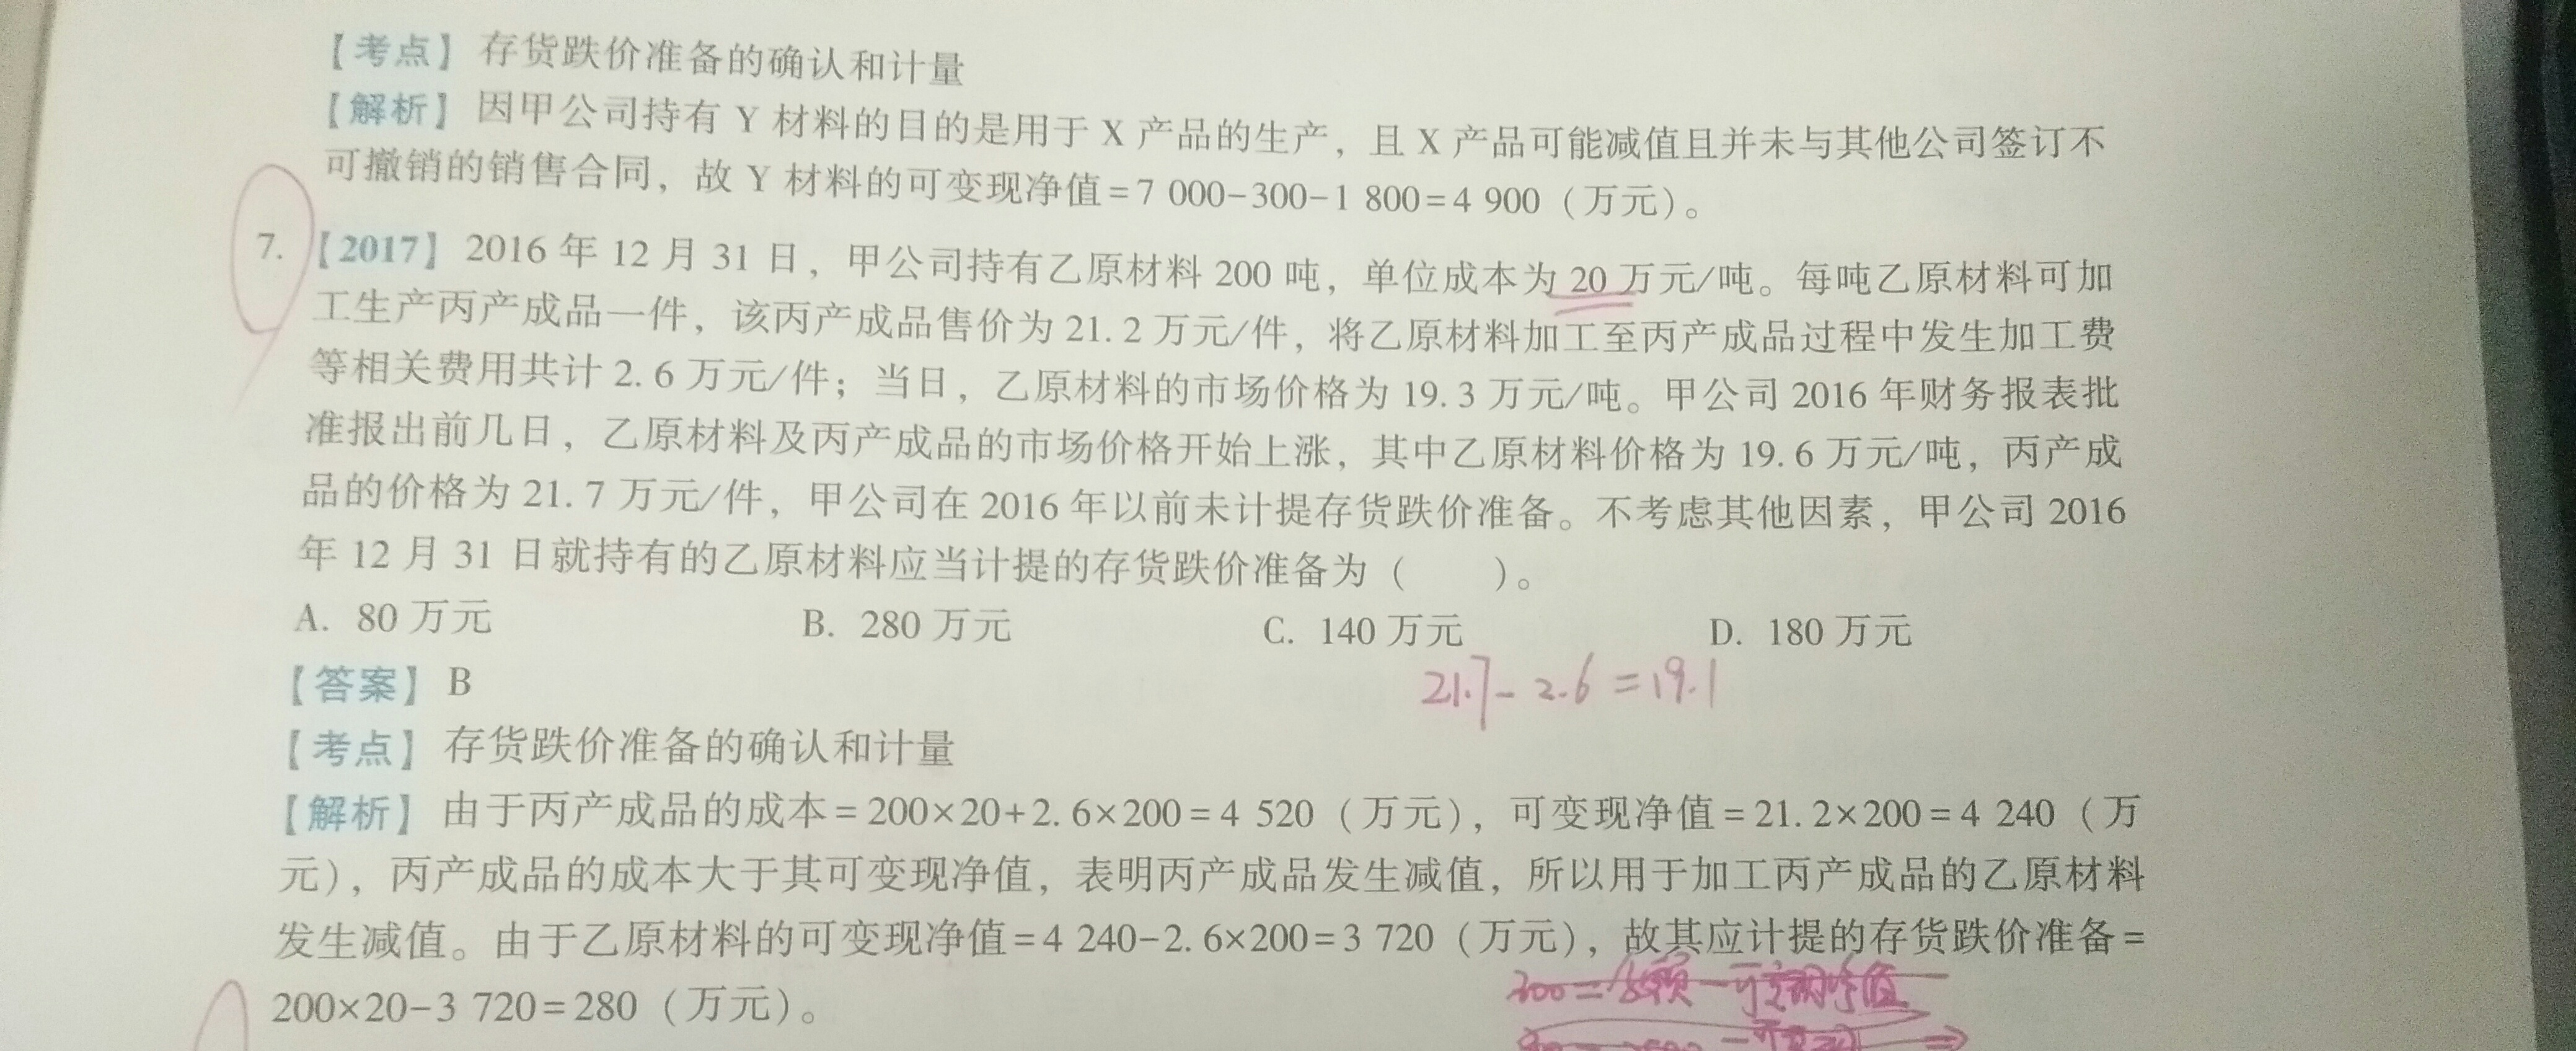 【考点】存货跌价准备的确认和计量
【解析】因甲公司持有 Y 材料的目的是用于 X 产品的生产，且 X 产品可能减值且并未与其他公司签订不
可撤销的销售合同，故 Y 材料的可变现净值=7 000-300-1 800=4 900（万元）。
7.【2017】2016 年 12 月 31 日，甲公司持有乙原材料 200 吨，单位成本为 20 万元/吨。每吨乙原材料可加
工生产丙产成品一件，该丙产成品售价为 21.2 万元/件，将乙原材料加工至丙产成品过程中发生加工费
等相关费用共计 2.6 万元/件；当日，乙原材料的市场价格为 19.3 万元/吨。甲公司 2016 年财务报表批
准报出前几日，乙原材料及丙产成品的市场价格开始上涨，其中乙原材料价格为 19.6 万元/吨，丙产成
品的价格为 21.7 万元/件，甲公司在 2016 年以前未计提存货跌价准备。不考虑其他因素，甲公司 2016
年 12 月 31 日就持有的乙原材料应当计提的存货跌价准备为（　　）。
A. 80 万元 B. 280 万元 C. 140 万元 D. 180 万元
【答案】B
21.7-2.6=19.1
【考点】存货跌价准备的确认和计量
【解析】由于丙产成品的成本=200×20+2.6×200=4 520（万元），可变现净值=21.2×200=4 240（万
元），丙产成品的成本大于其可变现净值，表明丙产成品发生减值，所以用于加工丙产成品的乙原材料
发生减值。由于乙原材料的可变现净值=4 240-2.6×200=3 720（万元），故其应计提的存货跌价准备=
200×20-3 720=280（万元）。